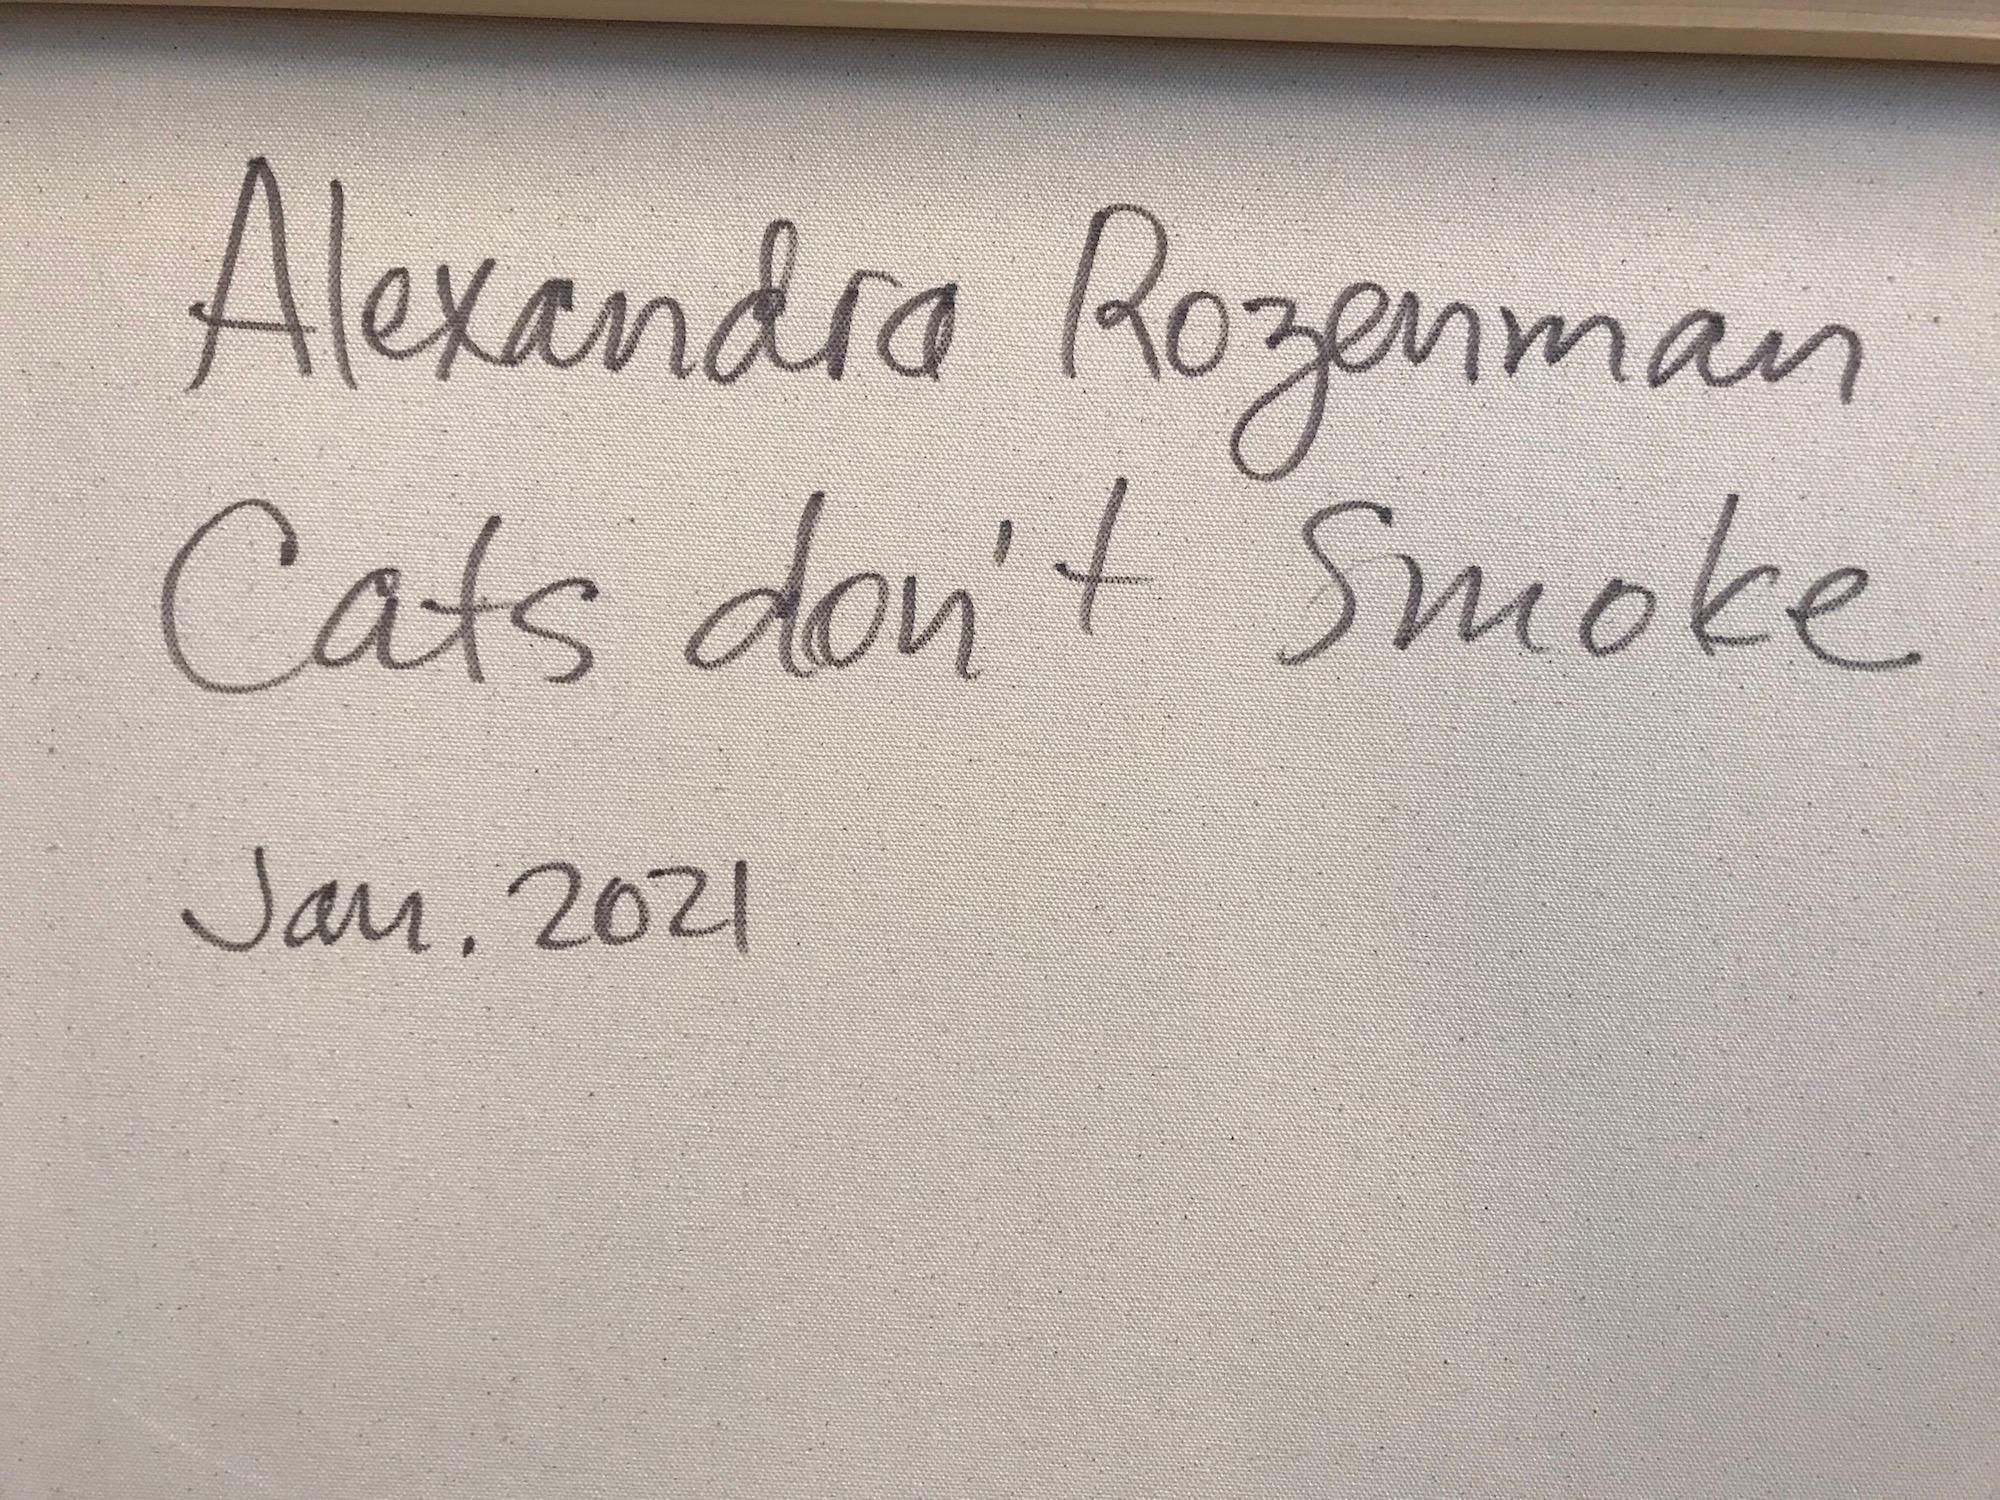 Alexandra Rozenman
Cats don't Smoke
Jan. 2021